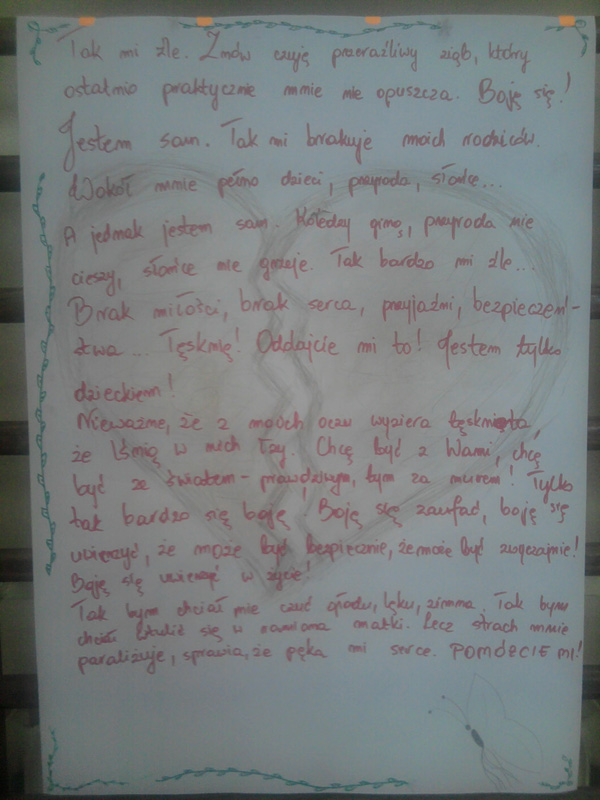 Tak mi źle. Znów czuję przeraźliwy ziąb, który
ostatnio praktycznie mnie nie opuszcza. Boję się!
Jestem sam. Tak mi brakuje moich rodziców.
Wokół mnie pełno dzieci, przyroda, słońce...
A jednak jestem sam. Koledzy giną, przyroda nie
cieszy, słońce nie grzeje. Tak bardzo mi źle...
Brak miłości, brak serca, przyjaźni, bezpieczeń-
stwa... Tęsknię! Oddajcie mi to! Jestem tylko
dzieckiem!
Nieważne, że z moich oczu wyziera tęsknota,
że lśnią w nich łzy. Chcę być z Wami, chcę
być ze światem - prawdziwym, tym za murem! Tylko
tak bardzo się boję. Boję się zaufać, boję się
uwierzyć, że może być bezpiecznie, że może być zwyczajnie!
Boję się uwierzyć w życie!
Tak bym chciał nie czuć głodu, lęku, zimna. Tak bym
chciał wtulić się w ramiona matki. Lecz strach mnie
paraliżuje, sprawia, że pęka mi serce. POMÓŻCIE MI!